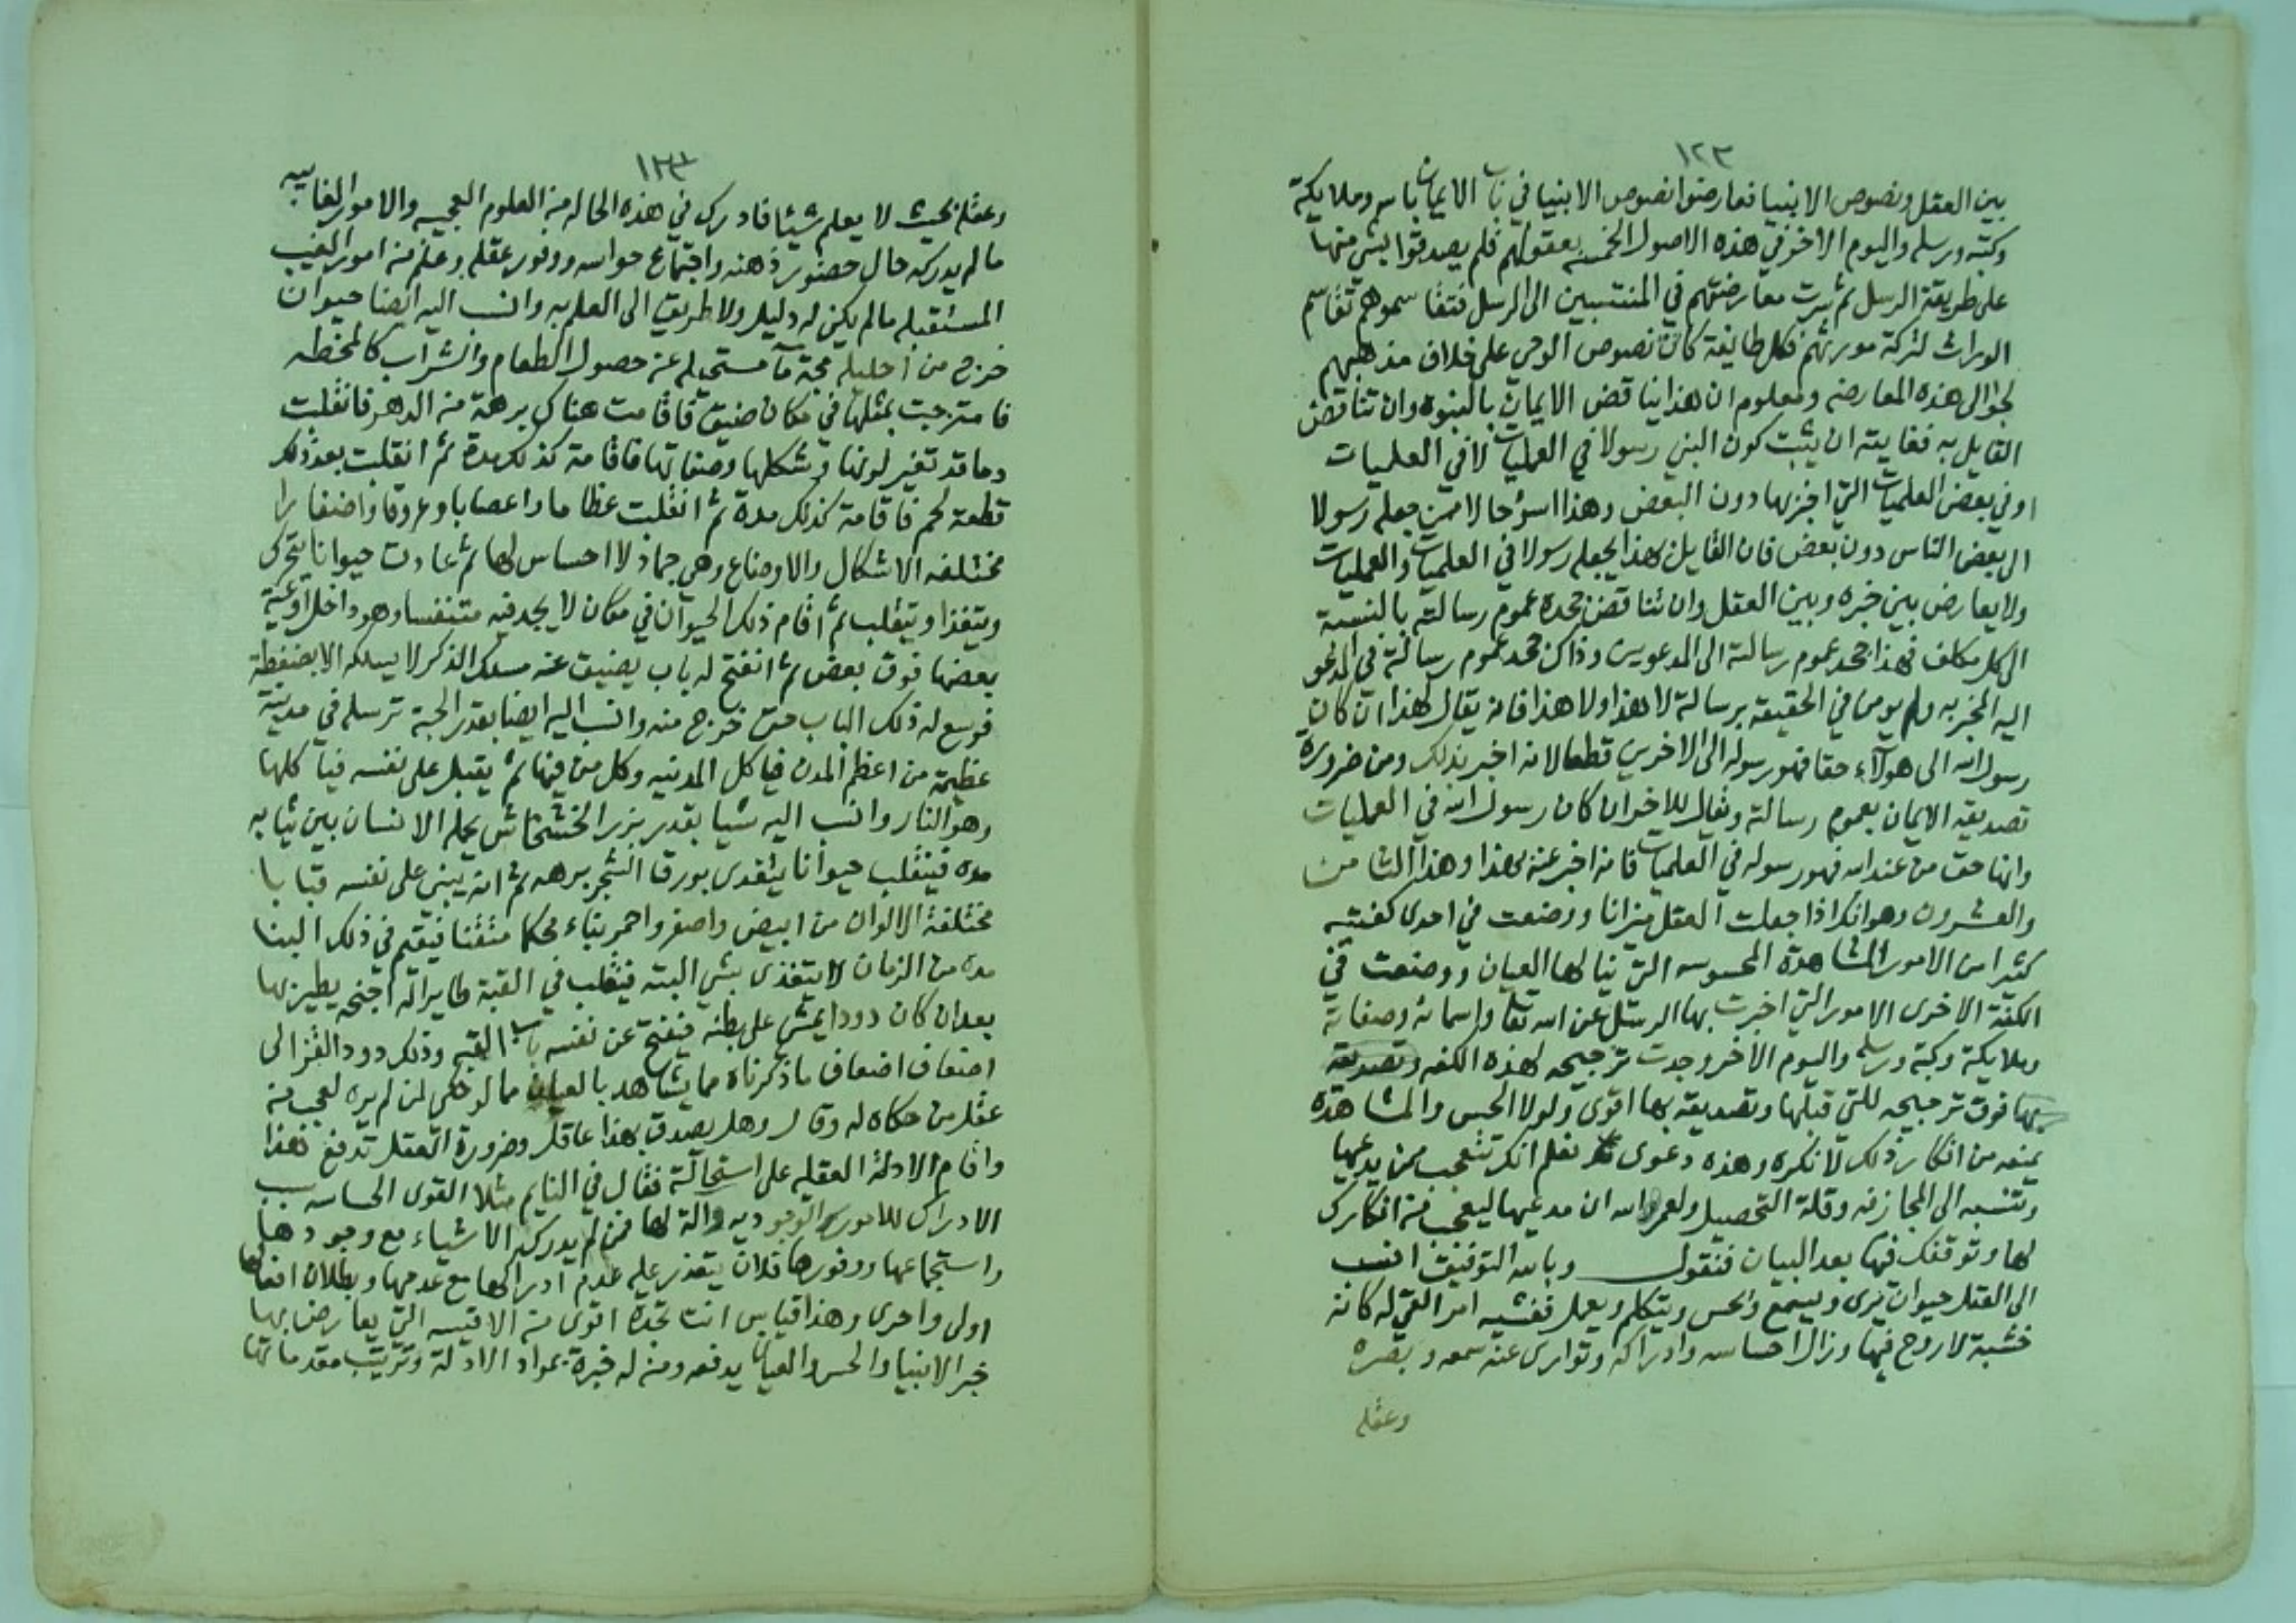 ١٢٣
بين العقل ونصوص الانبيا فعارضوا نصوص الانبيا في باب الايمان بالله وملايكته
وكتبه ورسله واليوم الاخر في هذه الاصول الخمسة بعقولهم فلم يصدقوا بشي منها
على طريقة الرسل ثم سرت معارضتهم في المنتسبين الى الرسل فتقاسموهم تقاسم
الوراث لتركة مورثهم فكل طايفة كان نصوص الوحي على خلاف مذهبهم
لجوا الى هذه المعارضه ومعلوم ان هذا يناقض الايمان بالنبوه وان تناقض
القايل به فغايته ان يثبت كون النبي رسولا في العمليات لا في العلميات
او في بعض العلميات التي اخبر بها دون البعض وهذا اسؤ حالا ممن جعله رسولا
الى بعض الناس دون بعض فان القايل بهذا يجعله رسولا في العلميات والعمليات
ولا يعارض بين خبره وبين العقل وان تناقض جحده عموم رسالته بالنسبة
الى كل مكلف فهذا جحد عموم رسالته الى المدعوين وذاك جحد عموم رسالته في المدعو
اليه المخبر به ولم يومن في الحقيقة برسالته لا هذا ولا هذا فانه يقال لهذا ان كان
رسول الله الى هولآء حقا فهو رسوله الى الاخرين قطعا لانه اخبر بذلك ومن ضرورة
تصديقه الايمان بعموم رسالته ويقال للاخر ان كان رسول الله في العمليات
وانها حق من عند الله فهو رسوله في العلميات فانه اخبر عنه بهذا وهذا الثامن
والعشرون وهو انك اذا جعلت العقل ميزانا ووضعت في احدى كفتيه
كثيرا من الامور المشاهدة المحسوسه التي ينالها العيان ووضعت في
الكفة الاخرى الامور التي اخبرت بها الرسل عن الله تعالى واسمائه وصفاته
وملايكته وكتبه ورسله واليوم الآخر وجدت ترجيحه لهذه الكفه وتصديقه
بها فوق ترجيحه للتي قبلها وتصديقه بها اقوى ولولا الحس والمشاهدة
يمنعه من انكار ذلك لانكره وهذه دعوى نعلم انك تتعجب ممن يدعيها
وتنسبه الى المجازفه وقلة التحصيل ولعمر الله ان مدعيها ليعجب من انكارك
لها وتوقفك فيها بعد البيان فنقول وبالله التوفيق انسب
الى العقل حيوان يرى ويسمع ويحس ويتكلم ويعمل فغشيه امر القي له كانه
خشبة لا روح فيها وزال احساسه وادراكه وتوارى عنه سمعه وبصره
وعقله
١٢٤
وعقله بحيث لا يعلم شيئا فادرك في هذه الحاله من العلوم العجيبه والامور الغايبه
ما لم يدركه حال حضور ذهنه واجتماع حواسه ووفور عقله وعلم من امور الغيب
المستقبله ما لم يكن له دليل ولا طريق الى العلم به وانسب اليه ايضا حيوان
خرج من احليله مجة مآ مستحيله عن حصول الطعام والشراب كالمخطه
فامتزجت بمثلها في مكان ضيق فاقامت هناك برهة من الدهر فانقلبت
دما قد تغير لونها وشكلها وصفاتها فاقامة كذلك مدة ثم انقلبت بعد ذلك
قطعة لحم فاقامة كذلك مدة ثم انقلبت عظاما واعصابا وعروقا واضفارا
مختلفه الاشكال والاوضاع وهي جماد لا احساس لها ثم عادت حيوانا يتحرك
ويتغذا ويتقلب ثم اقام ذلك الحيوان في مكان لا يجد فيه متنفسا وهو داخل اوعية
بعضها فوق بعض ثم انفتح له باب يضيق عنه مسلك الذكر لا يسلكه الا بضغطة
فوسع له ذلك الباب حتى خرج منه وانسب اليه ايضا بقدر الحبة ترسله في مدينة
عظيمة من اعظم المدن فياكل المدينه وكل من فيها ثم يقبل على نفسه فياكلها
وهو النار وانسب اليه شيا بقدر بزر الخشخاش يحمله الانسان بين ثيابه
مده فينقلب حيوانا يتغذى بورق الشجر برهه ثم انه يبني على نفسه قبابا
مختلفة الالوان من ابيض واصفر واحمر بناء محكما متقنا فيقيم في ذلك البنا
مده من الزمان لا يتغذى بشي البته فينقلب في القبة طايرا له اجنحه يطير بها
بعد ان كان دودا يمشي على بطنه فيفتح عن نفسه باب القبه وذلك دود القز الى
اضعاف اضعاف ما ذكرناه مما يشاهد بالعيان مما لو حكي لمن لم يره لعجب من
عقل من حكاه له وقال وهل يصدق بهذا عاقل وضرورة العقل تدفع هذا
واقام الادلة العقليه على استحالته فقال في النايم مثلا القوى الحساسه سبب
الادراك للامور الوجوديه وآلة لها فمن لم يدرك الاشياء مع وجودها
واستجماعها ووفورها فلان يتعذر عليه عدم ادراكها مع عدمها وبطلان افعالها
اولى واحرى وهذا قياس انت تجده اقوى من الاقيسه التي يعارض بها
خبر الانبيا والحس والعيان يدفعه ومن له خبرة بمواد الادلة وترتيب مقدماتها